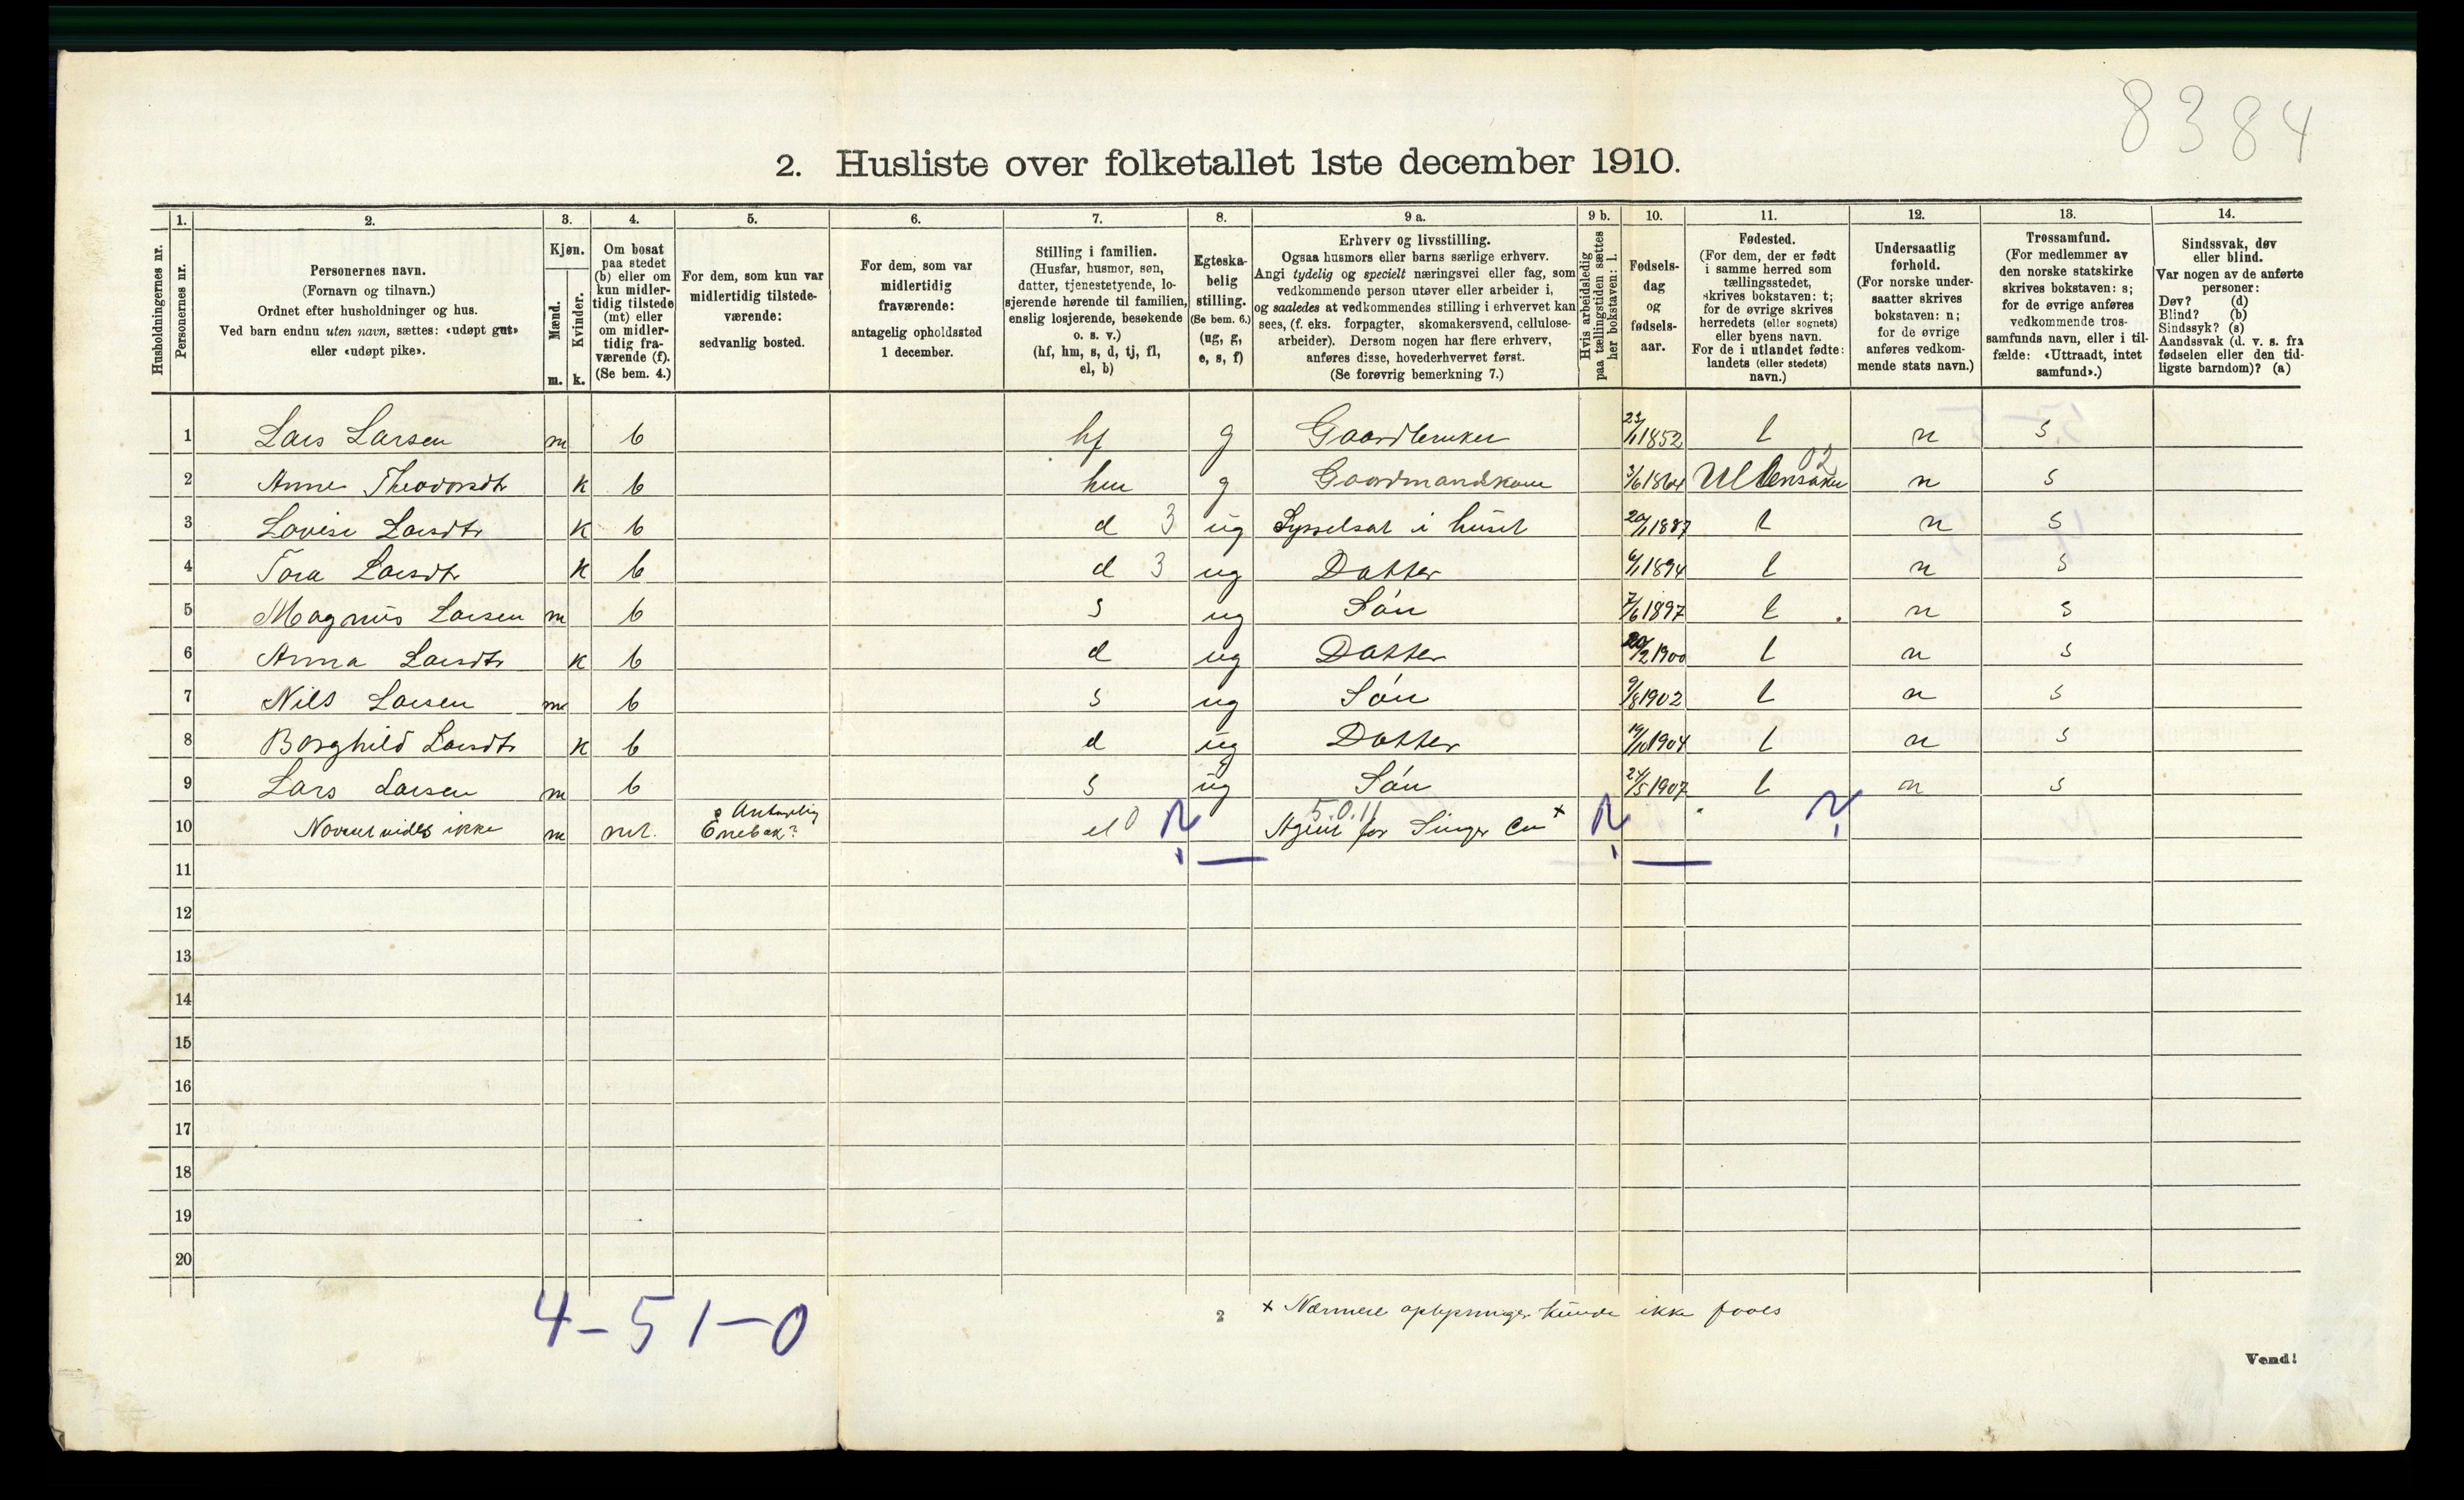 8384
2. Husliste over folketallet 1ste december 1910.
Husholdningernes nr.
1.
Personernes nr.
2.
Personernes navn.
(Fornavn og tilnavn.)
Ordnet efter husholdninger og hus.
Ved barn endnu uten navn, sættes: «udøpt gut»
eller «udøpt pike».
3.
Kjøn.
Mænd.
Kvinder.
m. k.
4.
Om bosat
paa stedet
(b) eller om
kun midler-
tidig tilstede
(mt) eller
om midler-
tidig fra-
værende (f).
(Se bem. 4.)
5.
For dem, som kun var
midlertidig tilstede-
værende:
sedvanlig bosted.
6.
For dem, som var
midlertidig
fraværende:
antagelig opholdssted
1 december.
7.
Stilling i familien.
(Husfar, husmor, søn,
datter, tjenestetyende, lo-
sjerende hørende til familien,
enslig losjerende, besøkende
o. s. v.)
(hf, hm, s, d, tj, fl,
el, b)
8.
Egteska-
belig
stilling.
(Se bem. 6.)
(ug, g,
e, s, f)
9 a.
Erhverv og livsstilling.
Ogsaa husmors eller barns særlige erhverv.
Angi tydelig og specielt næringsvei eller fag, som
vedkommende person utøver eller arbeider i,
og saaledes at vedkommendes stilling i erhvervet kan
sees, (f. eks. forpagter, skomakersvend, cellulose-
arbeider). Dersom nogen har flere erhverv,
anføres disse, hovederhvervet først.
(Se forøvrig bemerkning 7.)
9 b.
Hvis arbeidsledig
paa tællingstiden sættes
her bokstaven: l.
10.
Fødsels-
dag
og
fødsels-
aar.
11.
Fødested.
(For dem, der er født
i samme herred som
tællingsstedet,
skrives bokstaven: t;
for de øvrige skrives
herredets (eller sognets)
eller byens navn.
For de i utlandet fødte:
landets (eller stedets)
navn.)
12.
Undersaatlig
forhold.
(For norske under-
saatter skrives
bokstaven: n;
for de øvrige
anføres vedkom-
mende stats navn.)
13.
Trossamfund.
(For medlemmer av
den norske statskirke
skrives bokstaven: s;
for de øvrige anføres
vedkommende tros-
samfunds navn, eller i til-
fælde: «Uttraadt, intet
samfund».)
14.
Sindssvak, døv
eller blind.
Var nogen av de anførte
personer:
Døv? (d)
Blind? (b)
Sindssyk? (s)
Aandssvak (d. v. s. fra
fødselen eller den tid-
ligste barndom)? (a)
1 Lars Larsen m b hf g Gaardbruker 23/11 1852 t n s
2 Anne Theodorsdtr k b hm g Gaardmandskone 3/6 1864 Ullensaker 02 n s
3 Lovise Larsdtr k b d 3 ug Sysselsat i huset 20/1 1887 t n s
4 Tora Larsdtr k b d 3 ug Datter 6/1 1894 t n s
5 Magnus Larsen m b s ug Søn 7/6 1897 t n s
6 Anna Larsdtr k b d ug Datter 20/2 1900 t n s
7 Nils Larsen m b s ug Søn 9/8 1902 t n s
8 Borghild Larsdtr k b d ug Datter 19/10 1904 t n s
9 Lars Larsen m b s ug Søn 24/5 1907 t n s
10 Navnet vides ikke m mt. Antagelig Enebak? el 0 5.0.11 Agent for Singer Co ×
11
12
13
14
15
16
17
18
19
20
4-51-0
2
× Nærmere oplysninger kunde ikke faaes
Vend!